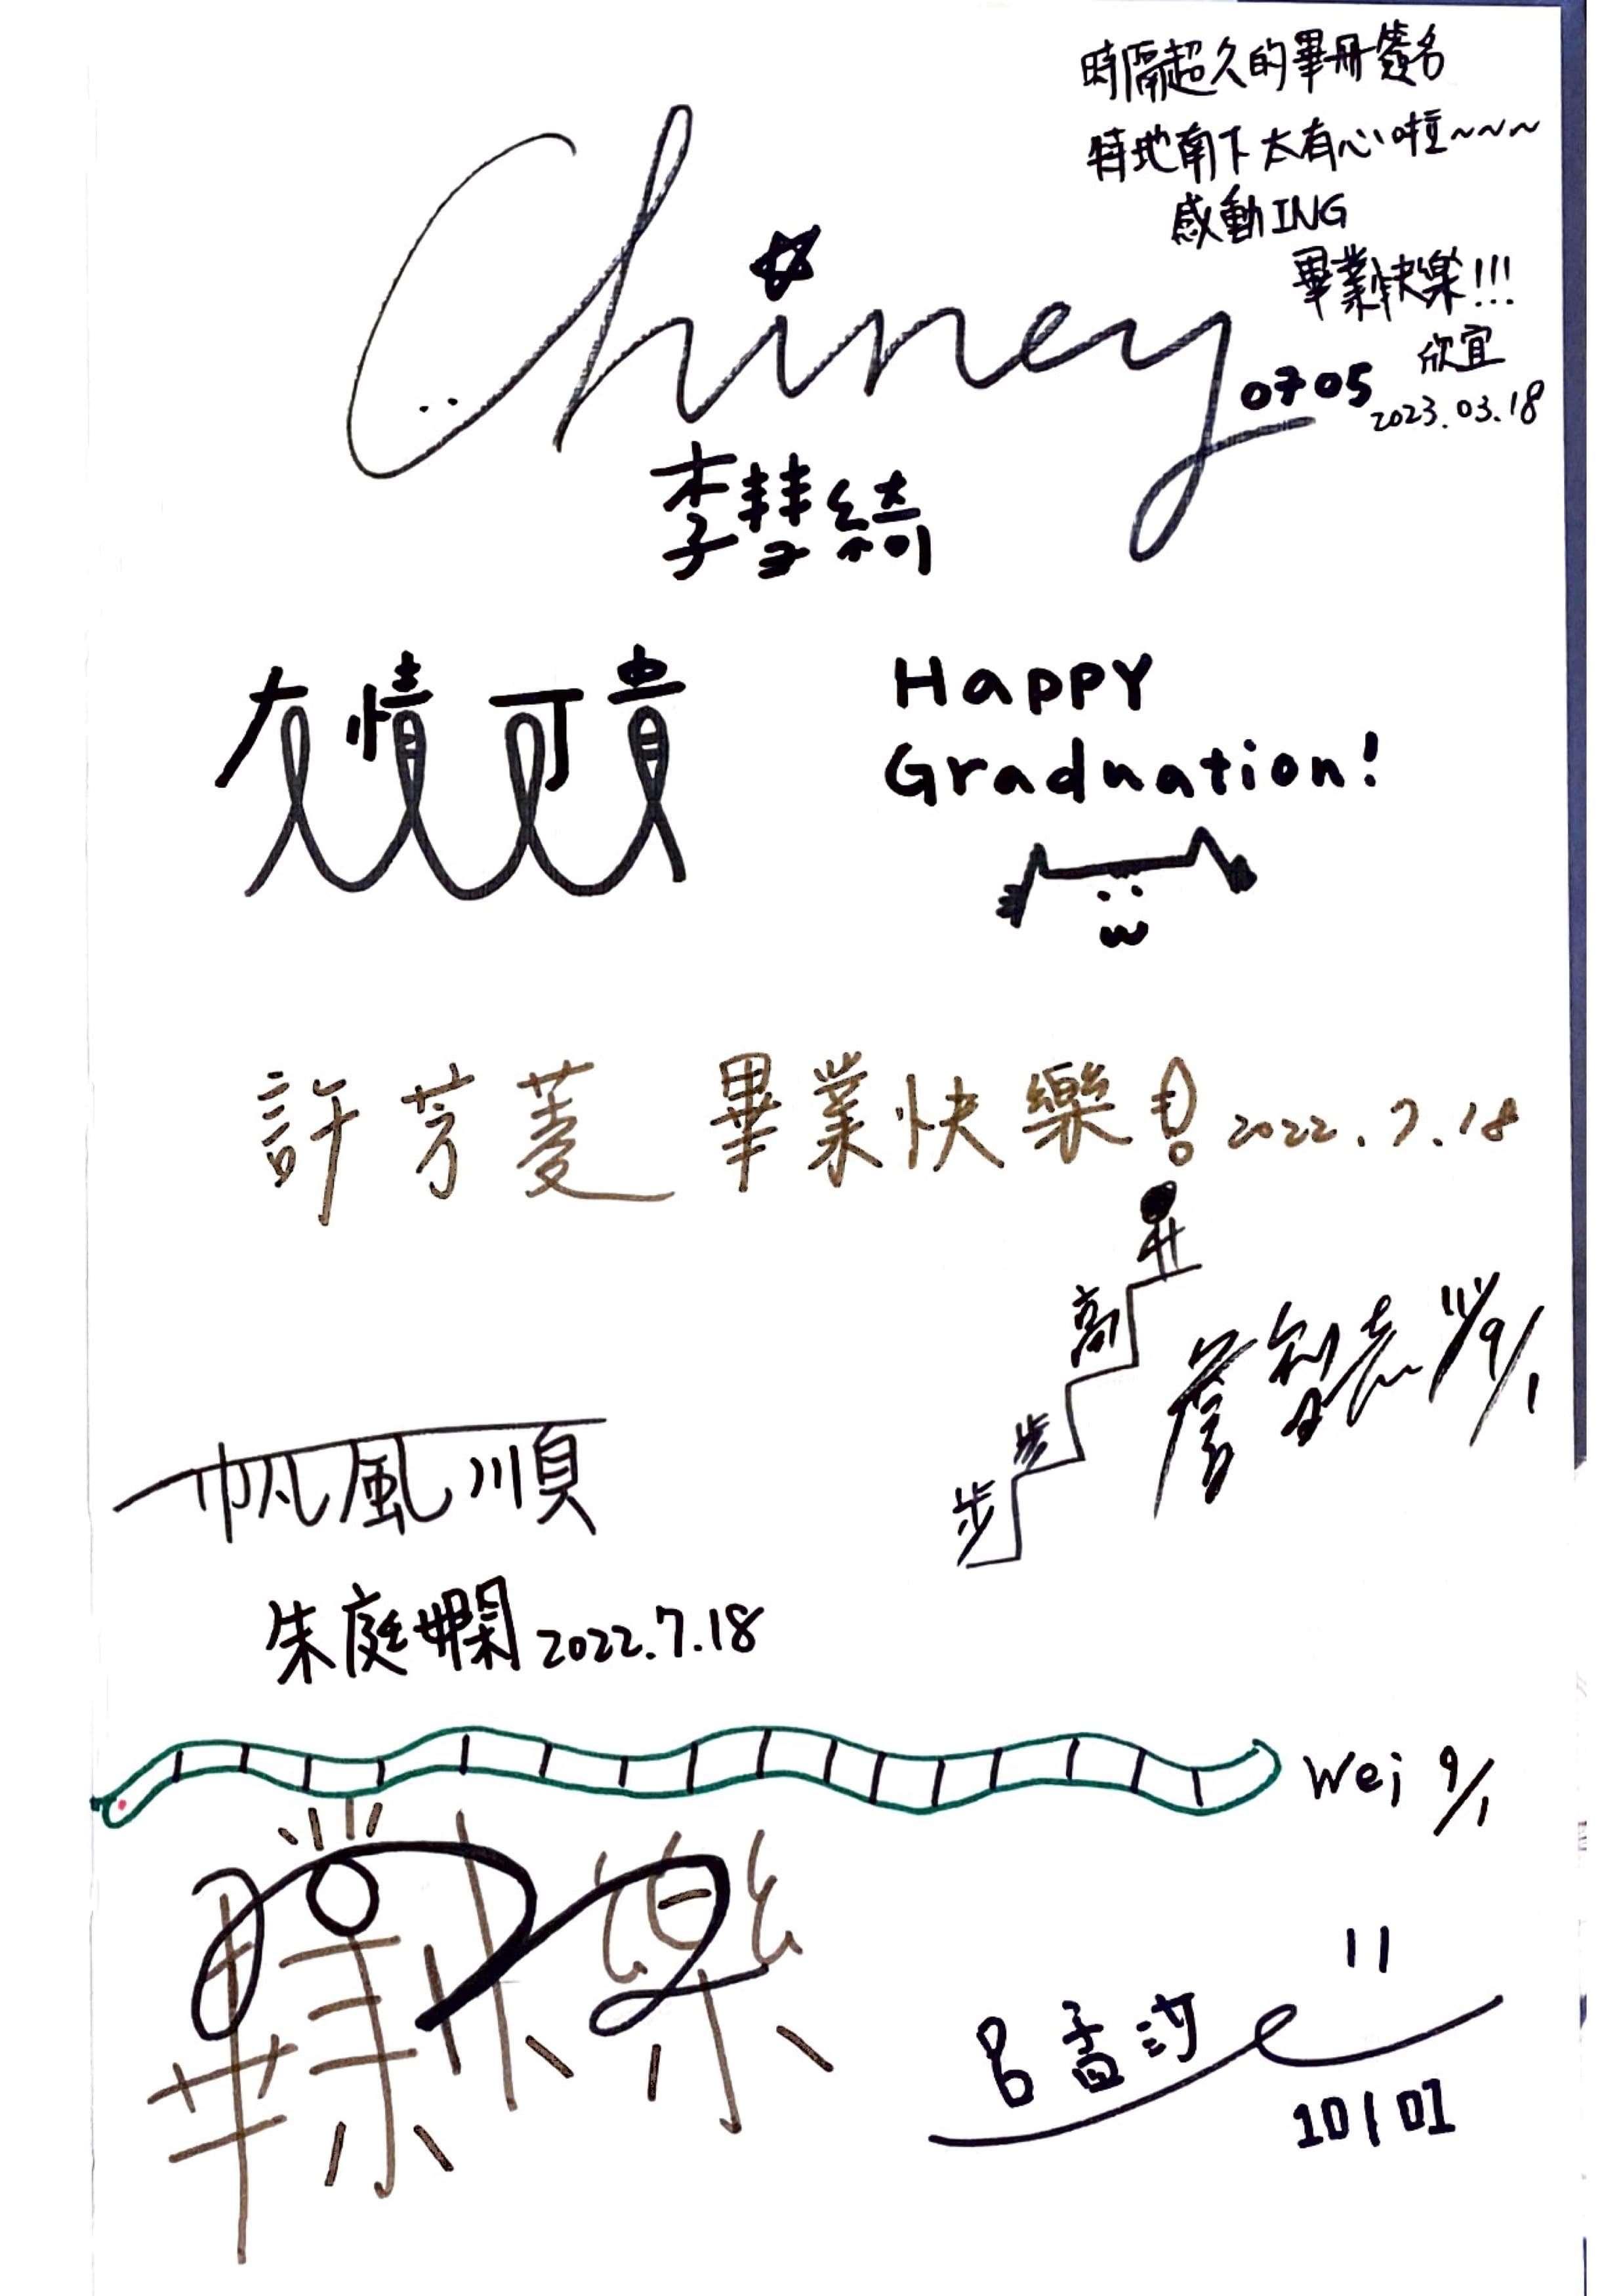 時隔超久的畢冊簽名
特地南下太有心啦~~~
感動ING
畢業快樂!!!
欣宜
2023.03.18
Chiney
0705
李彗綺
友情可貴
Happy
Graduation!
許芳菱 畢業快樂! 2022.7.18
步步高昇
詹智 111/9/1
一帆風順
朱庭嫻 2022.7.18
Wei 9/1
畢業快樂
呂孟河
10/01